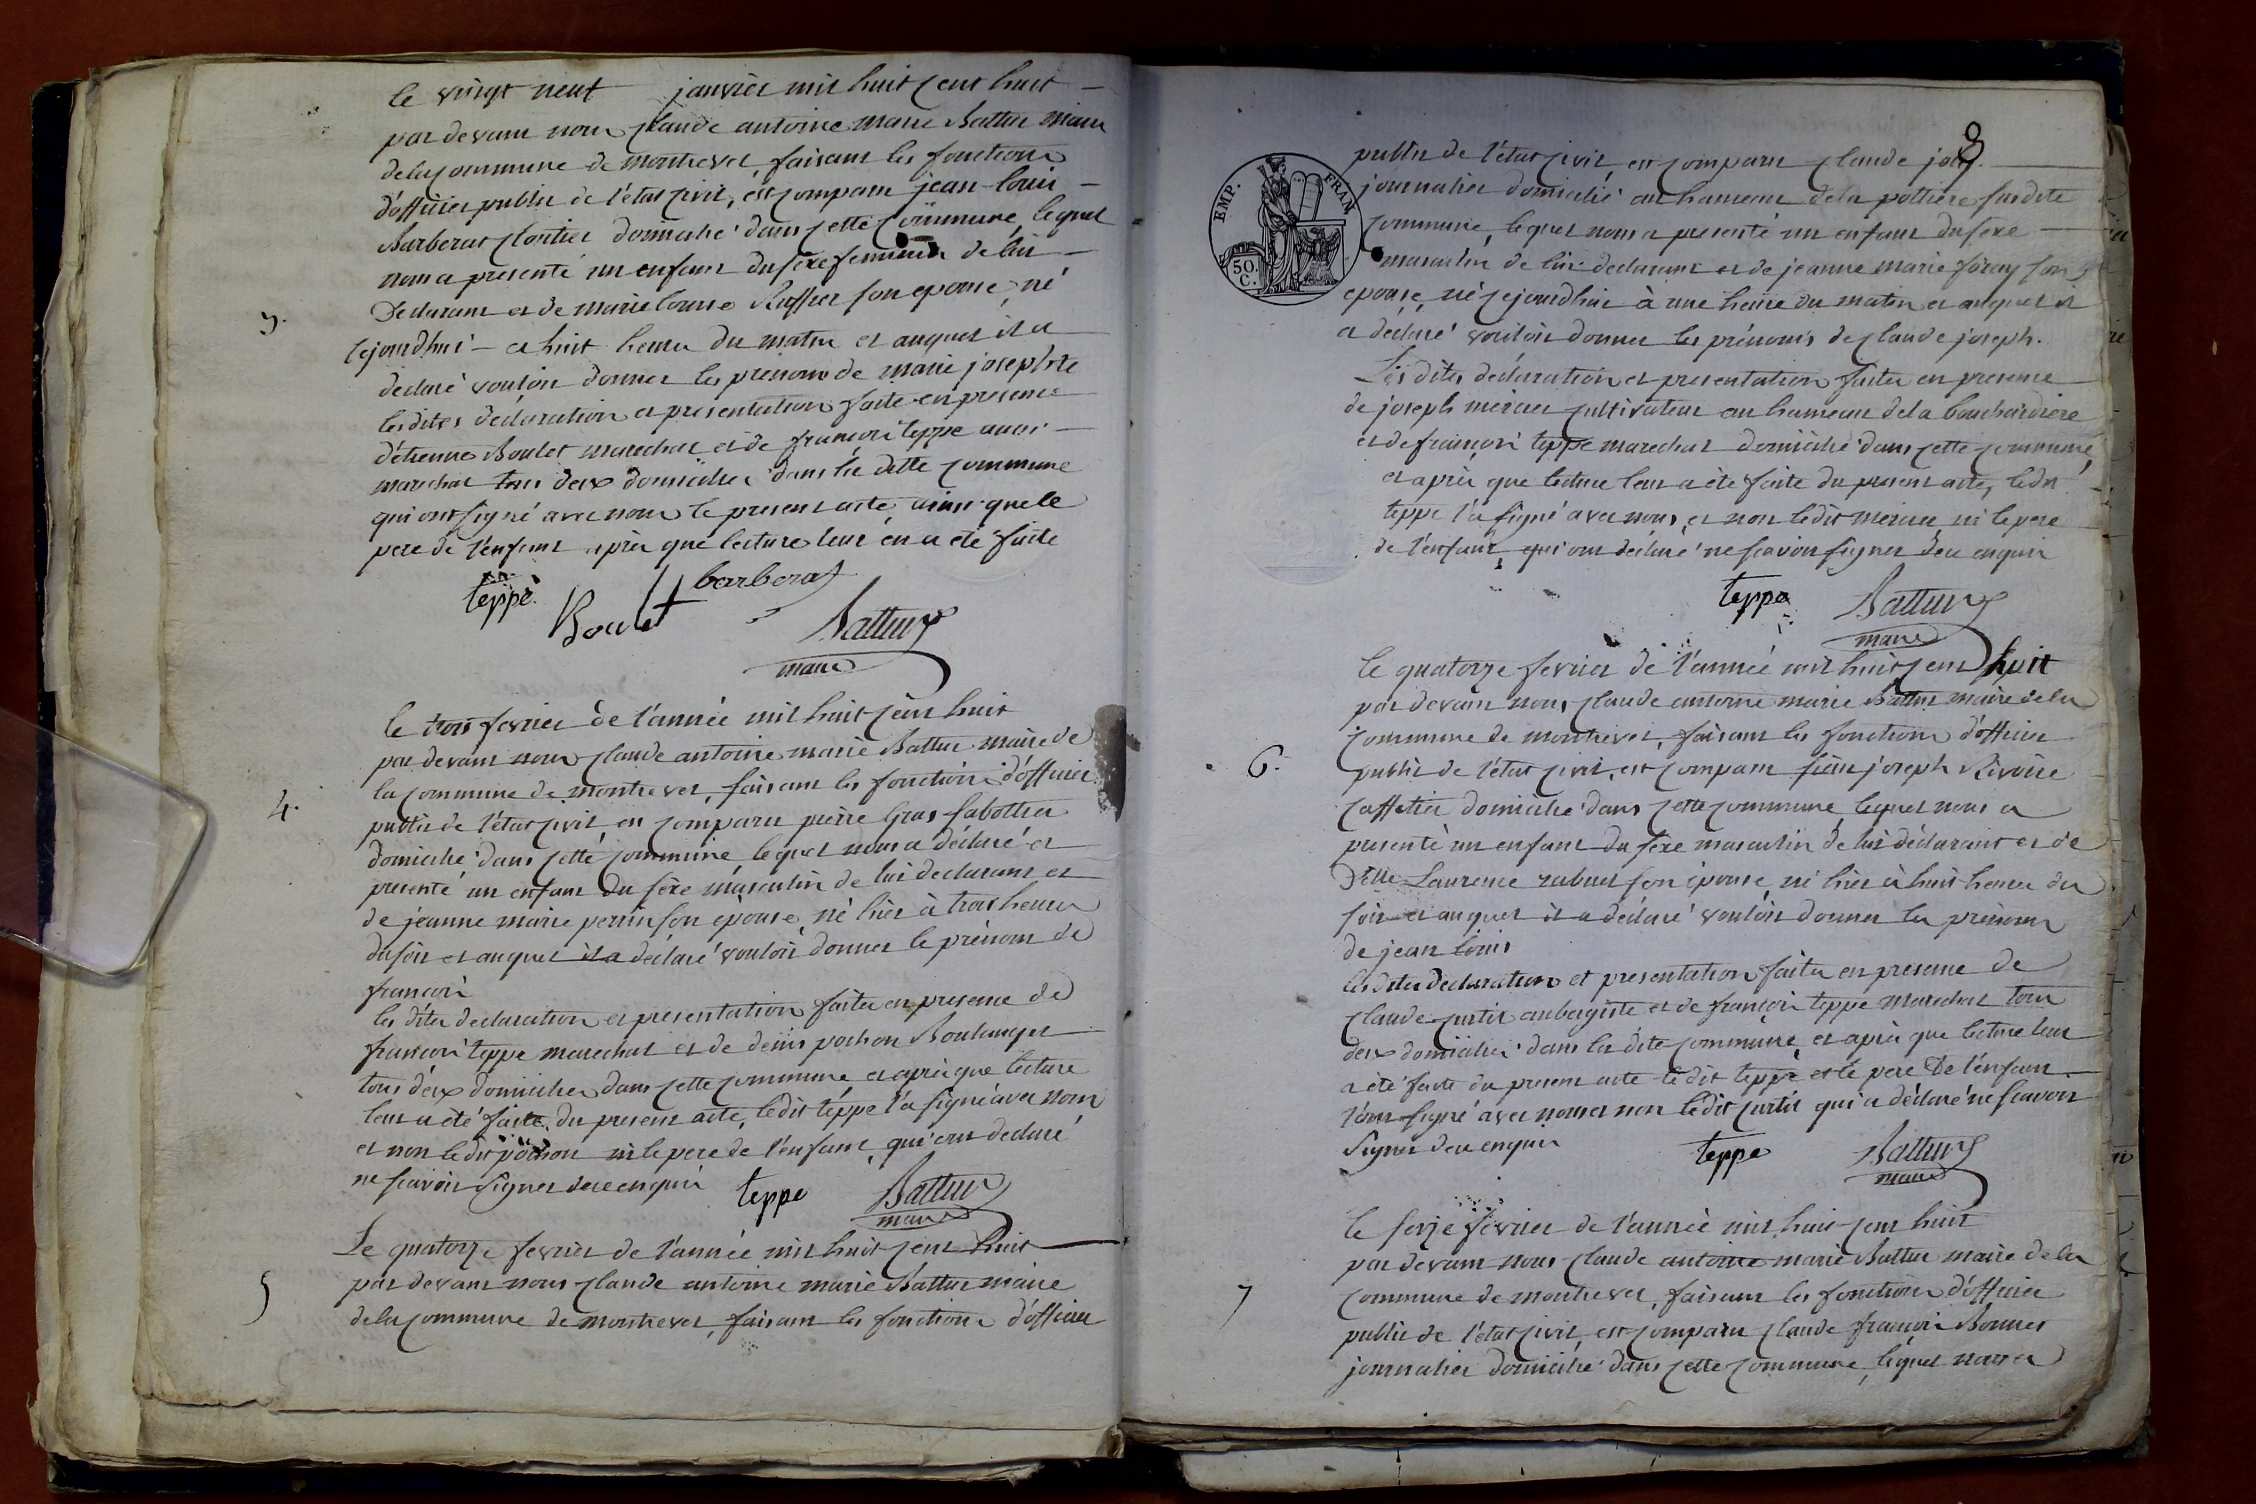 le vingt neuf janvier mil huit cent huit
par devant nous claude antoine marie Battur maire
de la commune de montrevel, faisant les fonctions
d'officier public de l'état civil, est comparu jean louis
Barberat cloutier domicilié dans cette commune, lequel
nous a presenté un enfant du sexe feminin de lui
3.
Declarant et de marie louise Ruffier son epouse, né
cejourdhui a huit heures du matin et auquel il a
declaré vouloir donner les prenoms de marie josephte
lesdites declaration et presentation faite en presence
d'étienne Boulet marechal et de françois teppe aussi
marechal tous deux domiciliés dans la ditte commune
qui ont signé avec nous le present acte, ainsi que le
pere de l'enfant après que lecture leur en a été faite
teppe. Boulet barberat
Battur
maire
le trois fevrier de l'année mil huit cent huit
par devant nous claude antoine marie Battur maire de
la commune de montrevel, faisant les fonctions d'officier
4.
public de l'état civil, est comparu pierre Gras sabottier
domicilié dans cette commune, lequel nous a déclaré et
presenté un enfant du sexe masculin de lui declarant et
de jeanne marie perrin son épouse, né hier à trois heures
du soir et auquel il a déclaré vouloir donner le prénom de
françois
les dites declaration et presentation faites en presence de
françois teppe marechal et de denis pochon Boulanger
tous deux domiciliés dans cette commune et après que lecture
leur a été faite du present acte, ledit teppe l'a signé avec nous
et non ledit pochon ni le pere de l'enfant, qui ont declaré
ne scavoir signer de ce enquis teppe Battur
maire
Le quatorze fevrier de l'année mil huit cent huit
5
par devant nous claude antoine marie Battur maire
de la commune de montrevel, faisant les fonctions d'officier
8
EMP. FRAN
50. C.
public de l'état civil, est comparu claude joly
journalier domicilié au hameau de la pottière susdite
commune, lequel nous a presenté un enfant du sexe
masculin de lui declarant et de jeanne marie son
épouse, né cejourdhui à une heure du matin et auquel il
a déclaré vouloir donner les prénoms de claude joseph.
Les dites déclaration et presentation faites en presence
de joseph mercier cultivateur au hameau de la bouchardière
et de françois teppe marechal domicilié dans cette commune,
et après que lecture leur a été faite du present acte, ledit
teppe l'a signé avec nous, et non ledit mercier ni le pere
de l'enfant, qui ont déclaré ne scavoir signer de ce enquis
teppe Battur
maire
le quatorze fevrier de l'année mil huit cent huit
par devant nous, claude antoine marie Battur maire de la
commune de montrevel, faisant les fonctions d'officier
6.
public de l'état civil, est comparu joseph Rivoire
caffetier domicilié dans cette commune, lequel nous a
presenté un enfant du sexe masculin de lui déclarant et de
Delle Laurence rabuel son épouse, né hier à huit heures du
soir et auquel il a déclaré vouloir donner les prénoms
de jean louis
les dites declaration et presentation faites en presence de
claude curtit aubergiste et de françois teppe marechal tous
deux domiciliés dans la dite commune, et après que lecture leur
a été faite du present acte ledit teppe et le pere De l'énfant
l'ont signé avec nous et non ledit curtit qui a déclaré ne scavoir
signer de ce enquis teppe Battur
maire
le seize fevrier de l'année mil huit cent huit
par devant nous claude antoine marie Battur maire de la
7
commune de montrevel, faisant les fonctions d'officier
public de l'état civil, est comparu claude françois Bonnet
journalier domicilié dans cette commune, lequel nous a